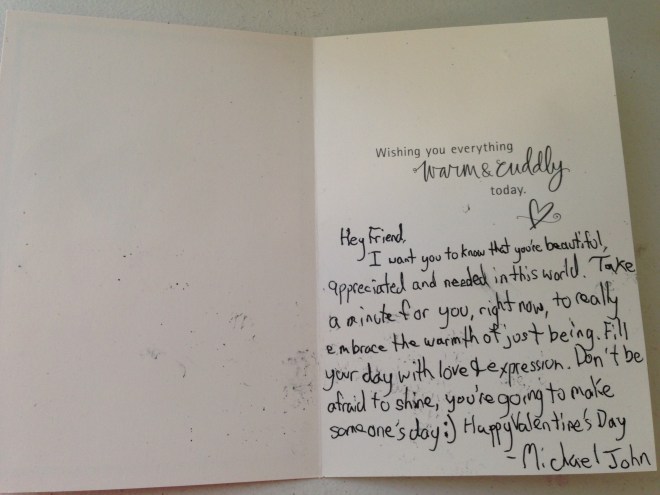 Wishing you everything
warm & cuddly
today.
Hey Friend,
I want you to know that you're beautiful,
appreciated and needed in this world. Take
a minute for you, right now, to really
embrace the warmth of just being. Fill
your day with love & expression. Don't be
afraid to shine, you're going to make
someone's day :) Happy Valentine's Day
- Michael John